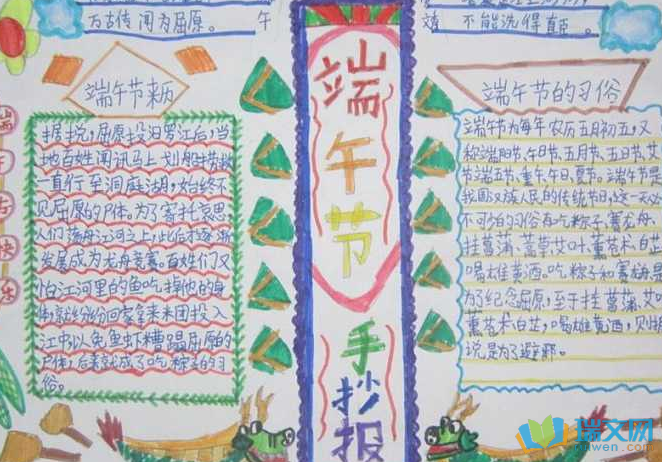 万古传闻为屈原。
午
不能洗得直臣。
端午节
手抄报
端午节来历
据说，屈原投汨罗江后，当
地百姓闻讯马上划船捞救
一直行至洞庭湖，始终不
见屈原的尸体。为了寄托哀思
人们荡舟江河之上，此后才逐渐
发展成为龙舟竞赛。百姓们又
怕江河里的鱼吃掉他的身
体，就纷纷回家拿来米团投入
江中，以免鱼虾糟蹋屈原的
尸体，后来就成了吃粽子的习
俗。
端午节的习俗
端午节为每年农历五月初五，又
称端阳节、午日节、五月节、五日节、艾
节、端五、重午、午日、夏节。端午节是
我国汉族人民的传统节日，这一天必
不可少的习俗有吃粽子，赛龙舟，
挂菖蒲、蒿草、艾叶，薰苍术、白芷
喝雄黄酒。吃粽子和赛龙舟是
为了纪念屈原，至于挂菖蒲、艾叶
薰苍术、白芷，喝雄黄酒，则据
说是为了避邪。
端
午
节
快
乐
瑞文网